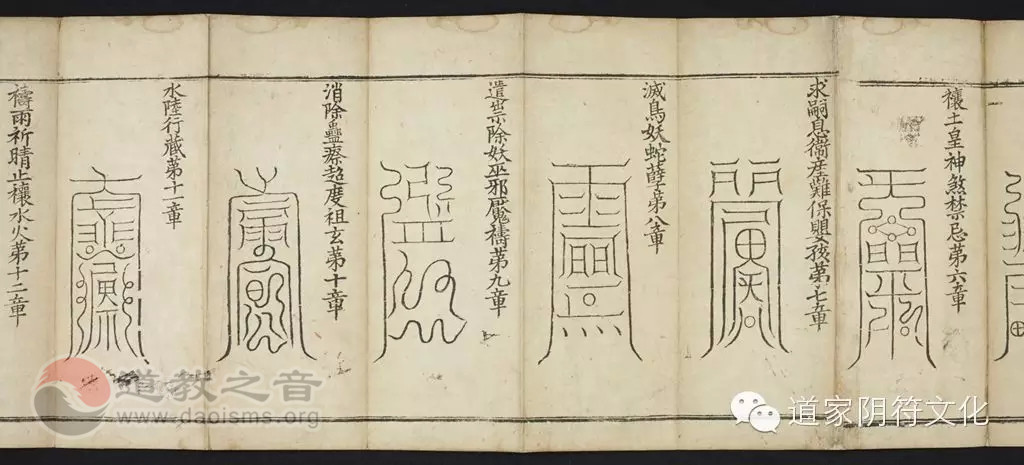 禳土皇神煞禁忌第六章
求嗣息衞產難保嬰孩第七章
滅鳥妖蛇孽第八章
遣祟除妖巫邪魘禱第九章
消除蠱瘵超度祖玄第十章
水陸行藏第十一章
禱雨祈晴止禳水火第十二章
道教之音
www.daoisms.org
道家阴符文化